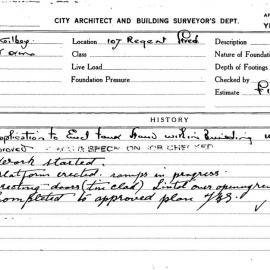 CITY ARCHITECT AND BUILDING SURVEYOR'S DEPT.
Location 107 Regent Street Description
Class Nature of Foundation
Live Load Depth of Footings
Foundation Pressure Checked by
Estimate
HISTORY
application to Erect tank stand within building
Work started.
Platform erected. ramps in progress.
Erecting doors (tin clad) Lintol over opening
Completed to approved plan